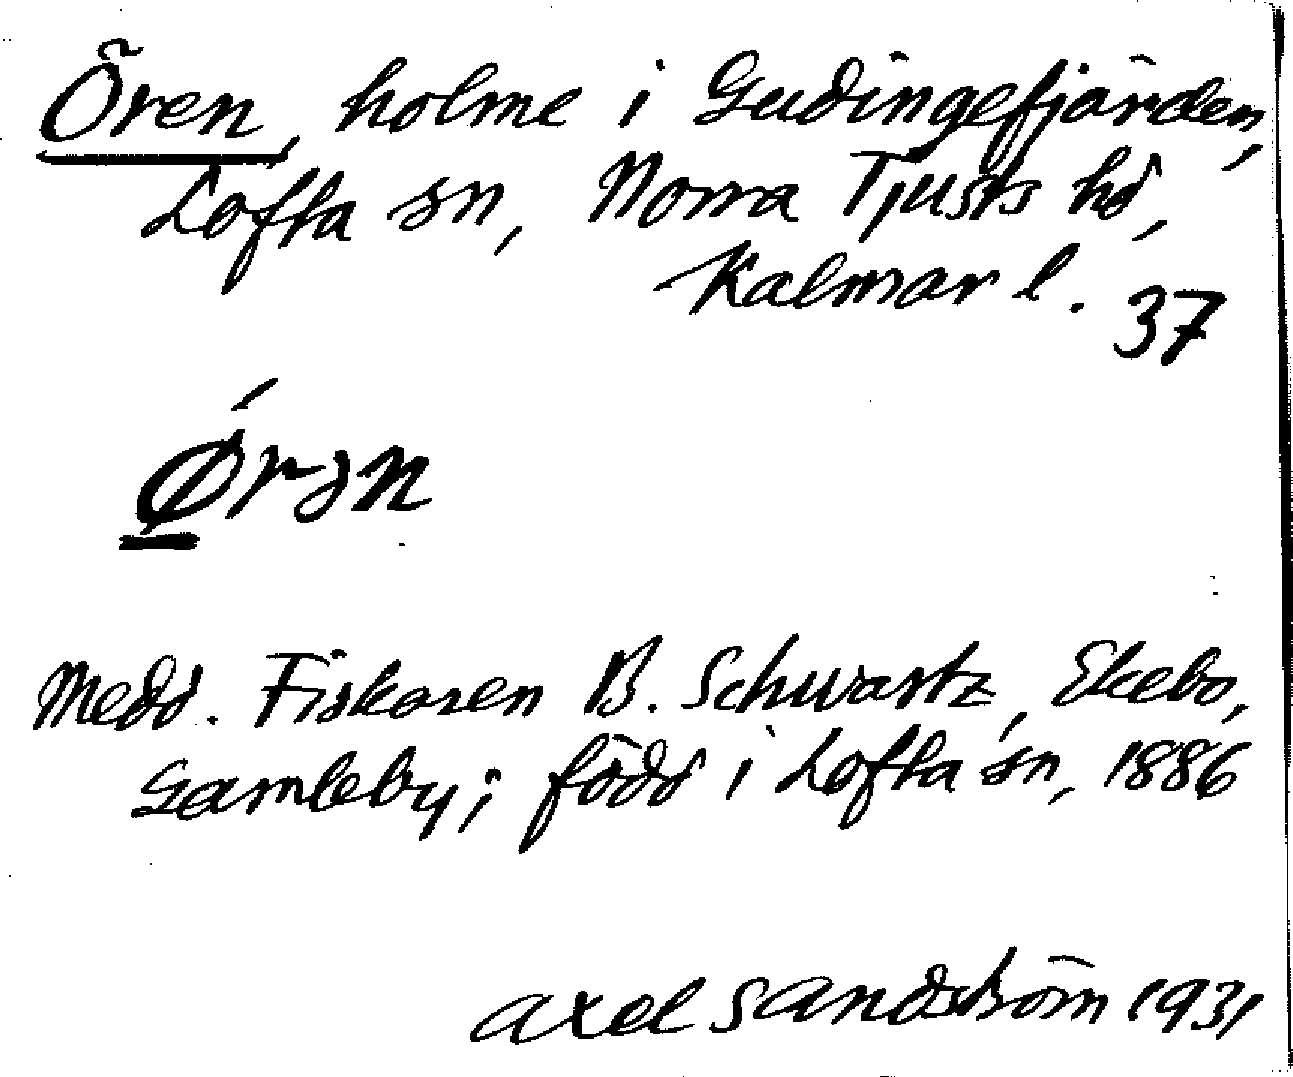 Ören, holme i Gudingefjärden,
Lofta sn, Norra Tjusts hd,
Kalmar l.
37
Ǿrən
Medd. Fiskaren B. Schwartz, Ekebo,
Gamleby; född i Lofta sn, 1886
Axel Sandström 1931